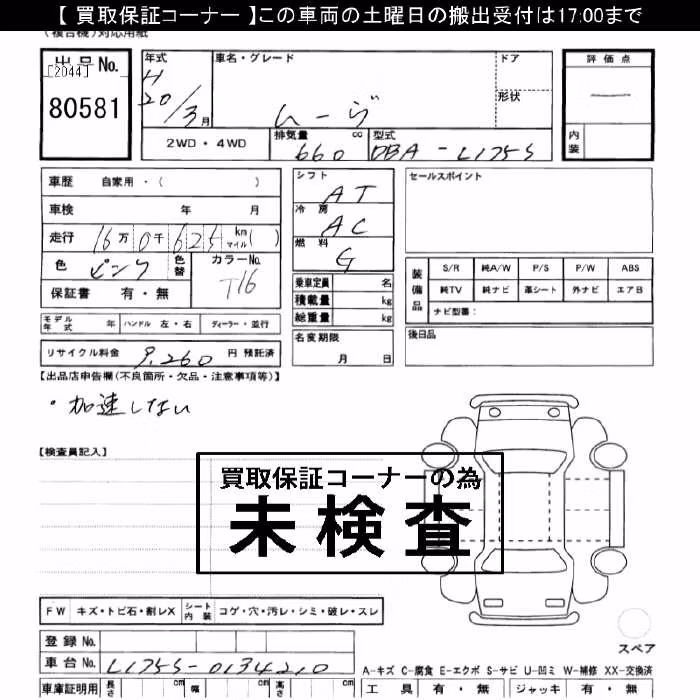 【 買取保証コーナー 】この車両の土曜日の搬出受付は17:00まで
(複合機)対応用紙
出品No.
[2044]
80581
年式
H
20/3月
車名・グレード
ムーヴ
ドア
形状
評価点
内装
2WD・4WD
排気量 cc
660
型式
DBA-L175S
車歴 自家用・( )
車検 年 月
走行 16万0千625 km マイル( )
色 ピンク 色替 カラーNo. T16
保証書 有・無
シフト
AT
冷房
AC
燃料
G
セールスポイント
乗車定員 名
積載量 kg
総重量 kg
装備品
S/R 純A/W P/S P/W ABS
純TV 純ナビ 革シート 外ナビ エアB
ナビ型番:
モデル年式 年 ハンドル 左・右 ディーラー・並行
名変期限
月 日
後日品
リサイクル料金 9,260 円 預託済
【出品店申告欄(不良箇所・欠品・注意事項等)】
・加速しない
【検査員記入】
買取保証コーナーの為
未検査
FW キズ・トビ石・割レX シート内装 コゲ・穴・汚レ・シミ・破レ・スレ
登録No.
車台No. L175S-0134210
スペア
A-キズ C-腐食 E-エクボ S-サビ U-凹ミ W-補修 XX-交換済
車庫証明用 長さ cm 幅 cm 高さ cm
工具 有・無 ジャッキ 有・無